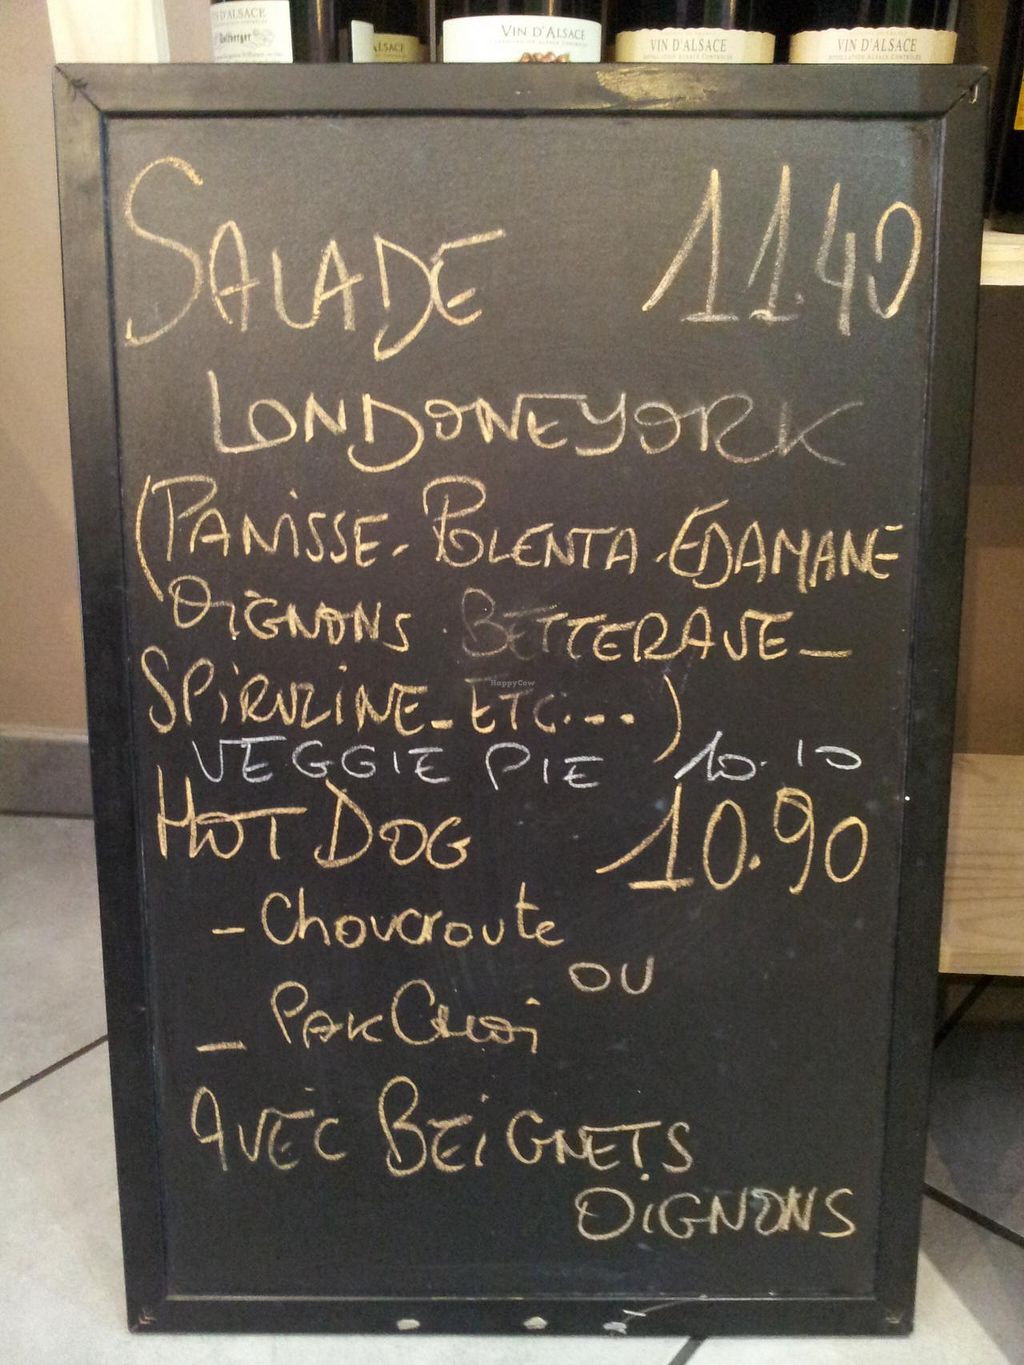 VIN D'ALSACE
ALSACE
VIN D'ALSACE
VIN D'ALSACE
VIN D'ALSACE
SALADE 11.40
LONDONEYORK
(PANISSE - POLENTA - EDAMAME
OIGNONS . BETTERAVE -
SPIRULINE - ETC.... )
VEGGIE PIE 10.10
HOT DOG 10.90
- Choucroute
OU
- PAK Choi
AVEC BEIGNETS
OIGNONS
HappyCow